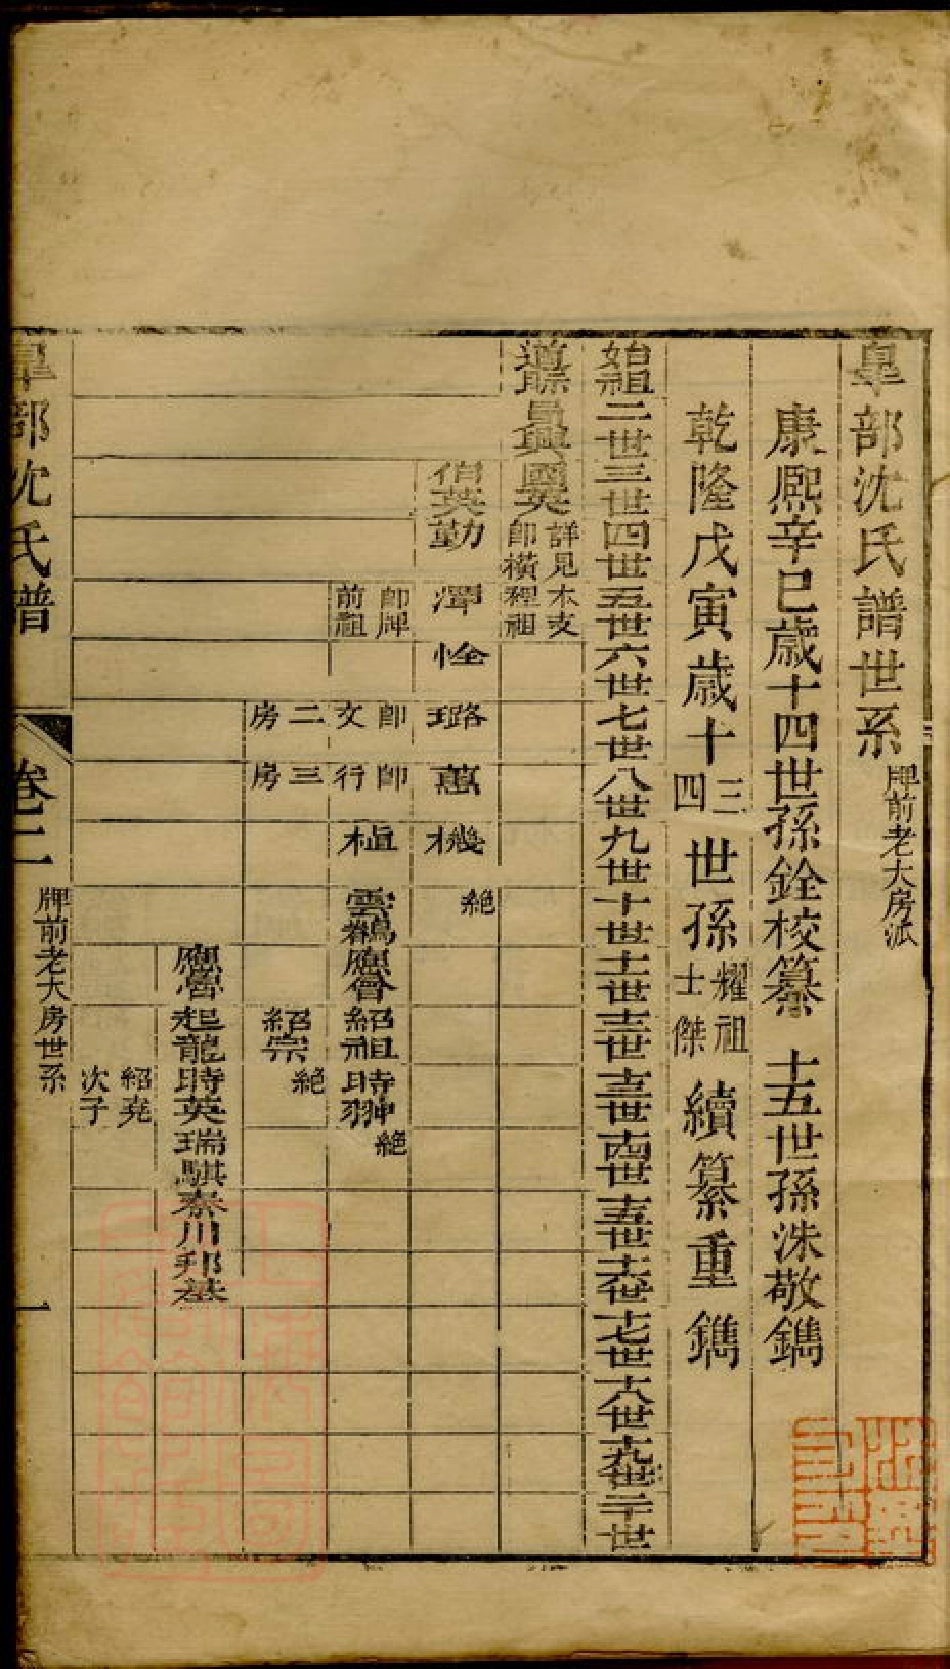 皐部沈氏譜世系 牌前老大房派
康熈辛巳歳十四世孫銓校纂 十五世孫洙敬鐫
乾隆戊寅歳十三四世孫耀祖士傑續纂重鐫
始祖 二世 三世 四世 五世 六世 七世 八世 九世 十世 十一世 十二世 十三世 十四世 十五世 十六世 十七世 十八世 十九世 二十世
道 昌興 國英 詳見本支卽橫程祖
伯英 勤 澤 恮 璐 蕙 機 絶
卽牌前祖 卽文二房 卽行三房
植 雲鵷 應會 紹祖 時翀 絶
紹宗 絶
應魯 起龍 時英 瑞騏 泰川 邦基
紹堯次子
皐部沈氏譜
卷二
牌前老大房世系
一